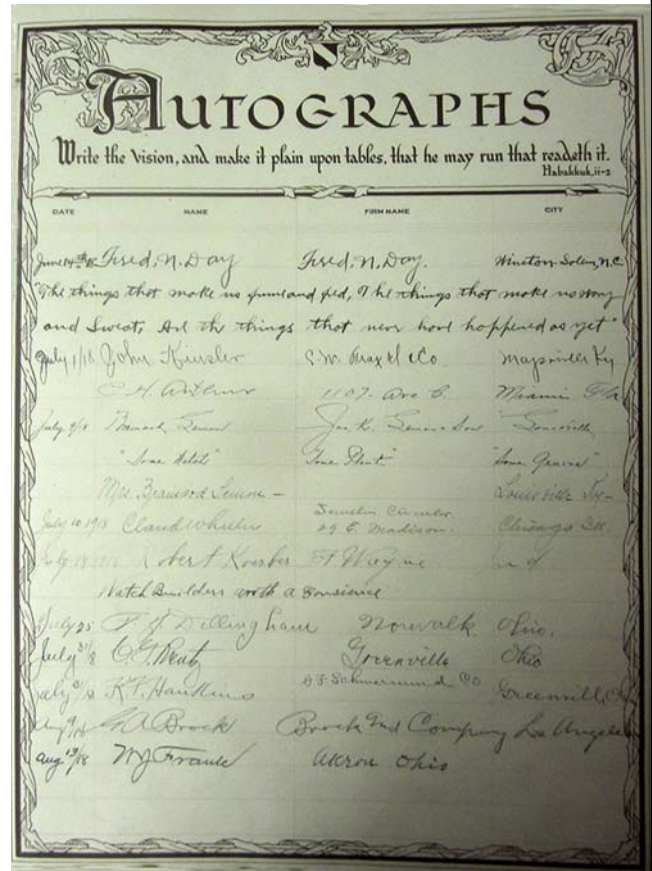 AUTOGRAPHS
Write the Vision, and make it plain upon tables, that he may run that readeth it.
Habakkuk, ii-2
DATE NAME FIRM NAME CITY
June 14 Fred. N. Day Fred. N. Day. Winston-Salem, N.C
"The things that make us and , The things that make us
and Sweat, Are the things that never have happened as yet"
July 1/18 John Kinsler & Co. Maysville Ky
C. H. Arthur 1107- Ave C. Miami Fla
July 9/18 Jas. K. Lemon & Son Louisville
"Some Hotel" "Some Plant" "Some "
Mrs. Lemon - Louisville Ky-
July 10 1918 Claud Wheeler Jewelers Circular
29 E. Madison. Chicago Ill.
July Robert Koerber Ft Wayne Ind
Watch Builders with a Consience
July 25 Dillingham Norwalk Ohio.
July 31/8 Greenville Ohio
Hawkins Co Greenville, O
Aug 9/18 Brock Brock and Company Los Angeles
Aug 13/18 W J Frank Akron Ohio